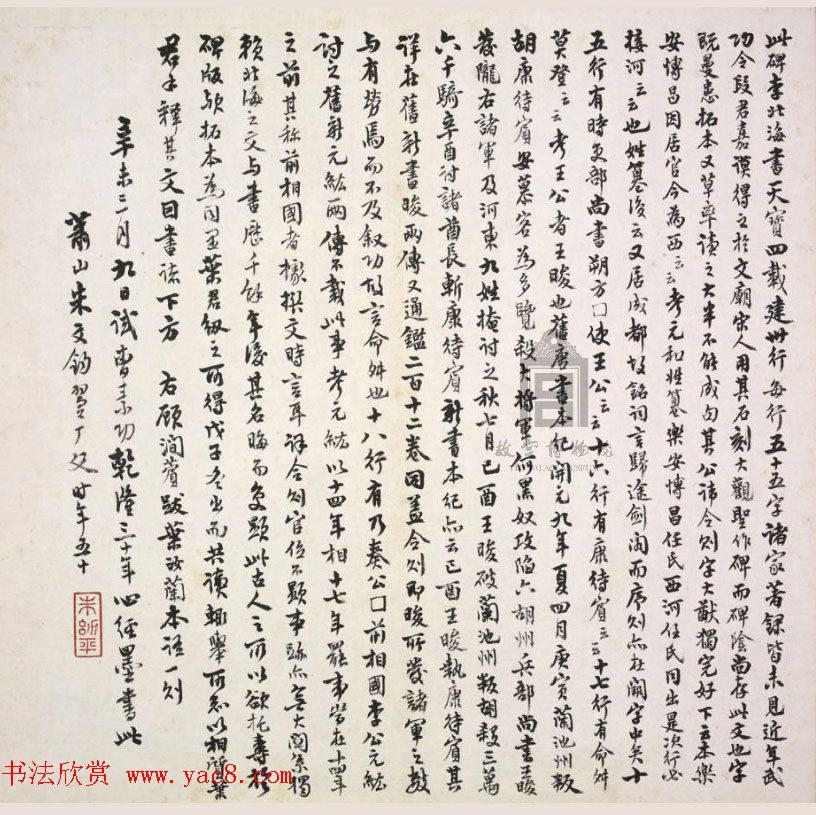 此碑李北海書天寶四載建卅行每行五十五字諸家著錄皆未見近年武
功令段君嘉謨得之於文廟宋人用其石刻大觀聖作碑而碑陰尚存此文也字
既曼患拓本又草率讀之大半不能成句其公諱令則字大猷獨完好下云本樂
安博昌因居官今為西云云考元和姓纂樂安博昌任氏西河任氏同出是次行必
接河云云也姓纂後云又居成都故銘詞言歸途劍閣而序則亦在闕字中矣十
五行有時吏部尚書朔方囗使王公云云十六行有康待賓云云十七行有命舛
莫登云云考王公者王晙也舊唐書本紀開元九年夏四月庚寅蘭池州叛
胡康待賓安慕容為多覽殺大將軍何黑奴攻陷六胡州兵部尚書王晙
發隴右諸軍及河東九姓掩討之秋七月己酉王晙破蘭池州叛胡殺三萬
六千騎辛酉討諸酋長斬康待賓新書本紀亦云己酉王晙執康待賓其
詳在舊新書晙兩傳又通鑑二百十二卷因蓋令則即晙所發諸軍之數
与有勞焉而不及叙功故言命舛也十八行有乃奏公囗前相國李公元紘
討之舊新元紘兩傳不載此事考元紘以十四年相十七年罷事當在十四年
之前其称前相國者據撰文時言耳詳令則官位不顯事跡亦無大關係獨
賴北海之文与書歷千餘年後其名晦而復顯此古人之所以欲托壽於
碑版歟拓本為同里葉君紉之所得戊子冬出而共讀輙舉所知以相質葉
君手釋其文因書諸下方 右顧澗薲跋葉汝蘭本語一則
辛未二月九日試曹素功乾隆三十年心經墨書此
蕭山朱文鈞翼厂父時年五十
朱幼平
故宮博物院
THE PALACE MUSEUM
书法欣赏 www.yac8.com